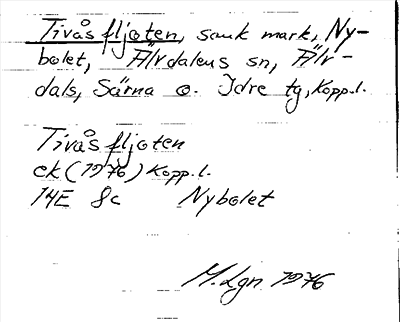 Tivåsfljoten, sank mark, Ny-
bolet, Älvdalens sn, Älv-
dals, Särna o. Idre tg, Kopp.l.
Tivåsfljoten
ek (1976) Kopp.l.
14E 8c Nybolet
M.Lgn 1976